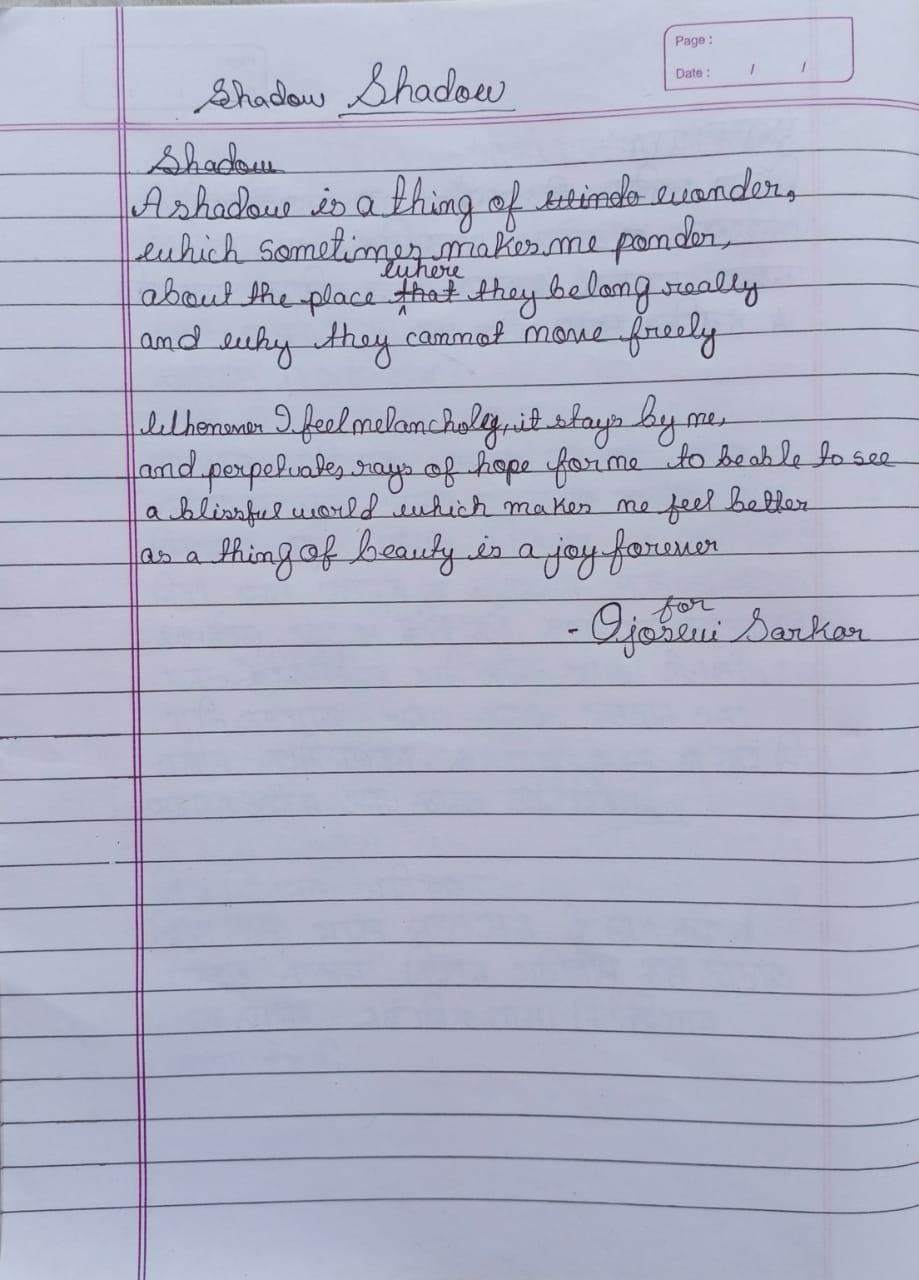 Page :
Date : / /
Shadow Shadow
Shadow
A shadow is a thing of windo wonder,
which sometimes makes me ponder,
where
about the place that they belong really
and why they cannot move freely
Whenever I feel melancholy, it stays by me,
and perpetuates rays of hope for me to be able to see
a blissful world which makes me feel better
as a thing of beauty is a joy forever
for
- Ojoswi Sarkar